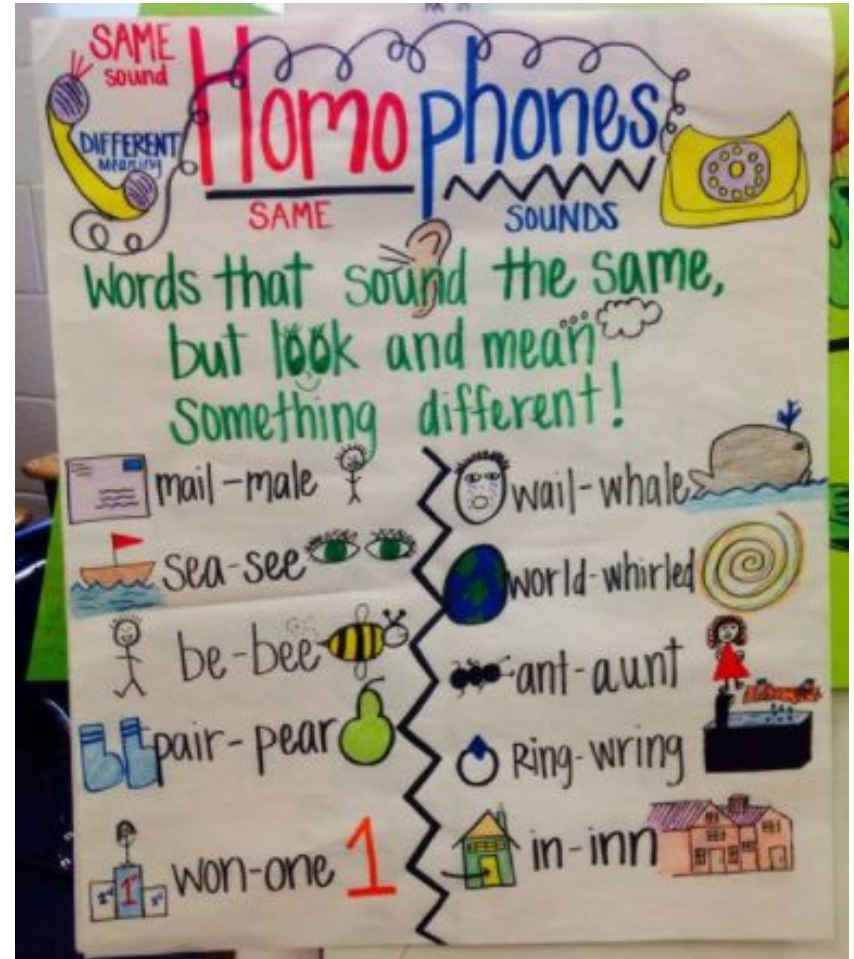 SAME
sound
DIFFERENT
Meaning
Homophones
SAME SOUNDS
Words that sound the same,
but look and mean
something different!
mail-male
sea-see
be-bee
pair-pear
1st
2nd
won-one 1
wail-whale
world-whirled
ant-aunt
Ring-wring
in-inn